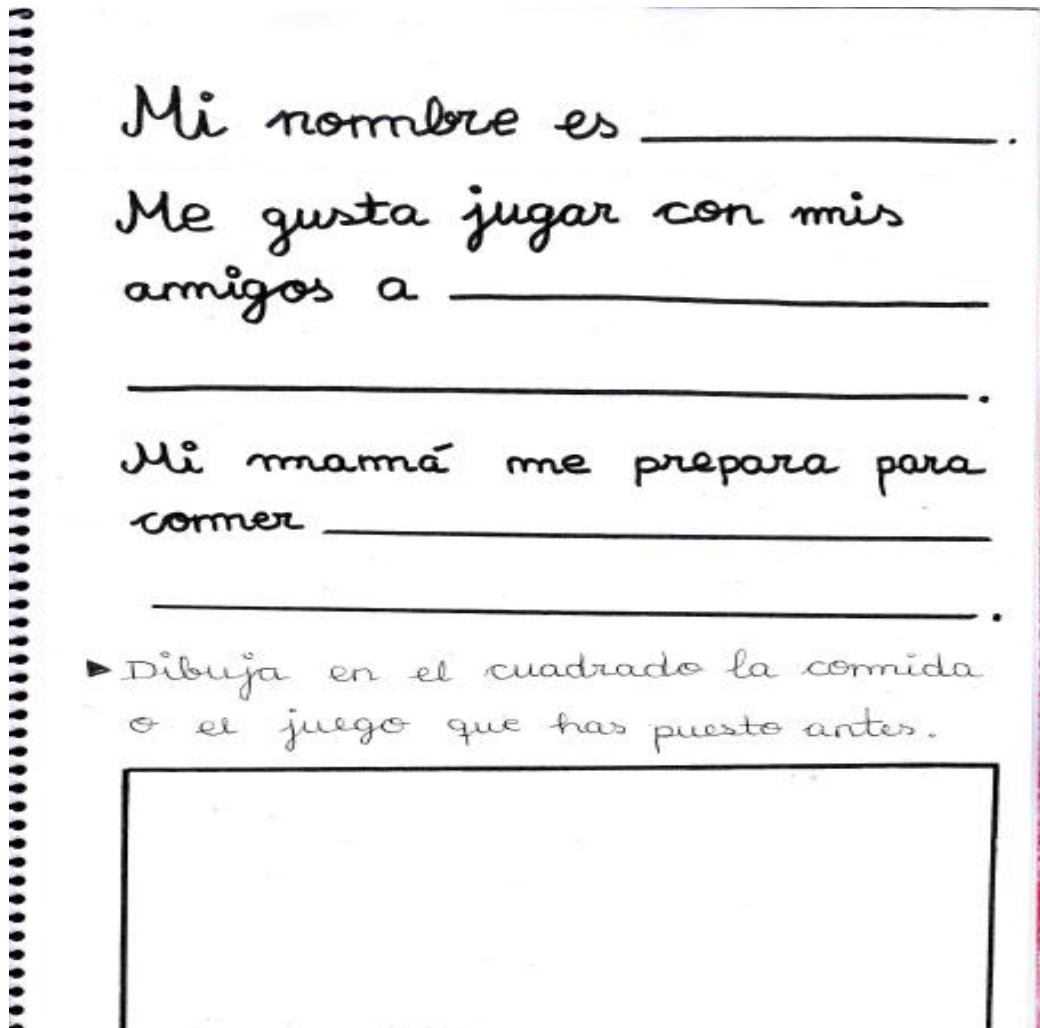 Mi nombre es ____________.
Me gusta jugar con mis
amigos a ____________
____________.
Mi mamá me prepara para
comer ____________
____________.
▶ Dibuja en el cuadrado la comida
o el juego que has puesto antes.